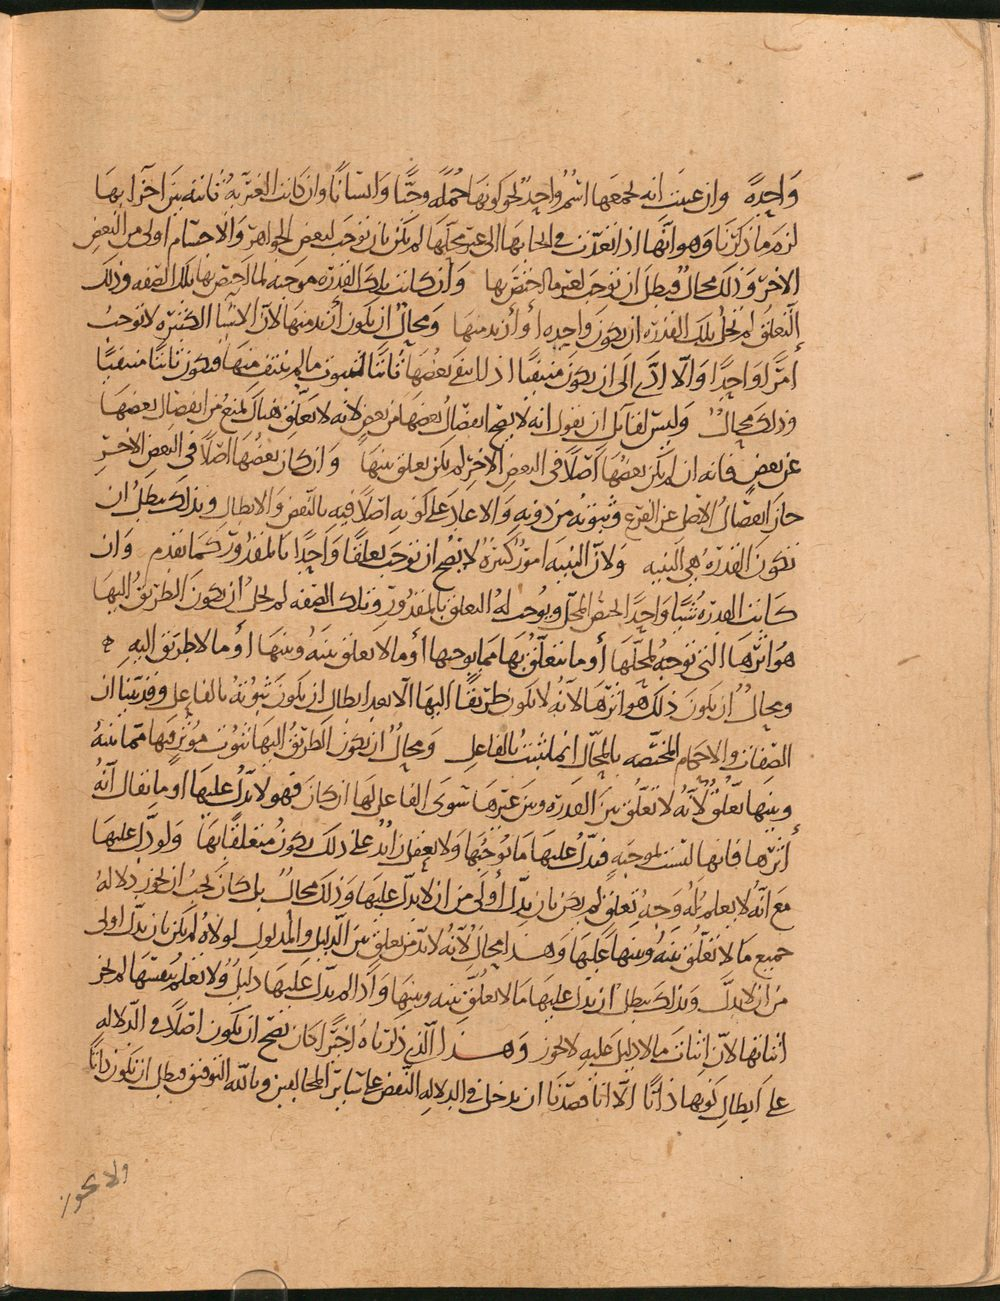 واحدة وان عنيت انه لجمعها اسم واحد نحو كونها جملة وحيا وانسانا وان كانت الغيرية ثابتة بين اجزائها
لزم ما ذكرنا وهو انها اذا تعدت في ايجابها الى غير محلها لم يكن بان توجب لبعض الجواهر والاجسام اولى من البعض
الاخر وذلك محال فبطل ان توجب لغير ما اختص بها وان كانت تلك القدرة موجبة لما اختص بها تلك الصفة وذلك
التعلق لم تخل تلك القدرة ان تكون واحدة او ازيد منها ومحال ان يكون ازيد منها لان الاشياء الكثيرة لا توجب
امرا واحدا والا ادى الى ان يكون منتفيا اذا انتفى بعضها ثابتا لثبوت ما لم ينتف منها فيكون ثابتا منتفيا
وذلك محال وليس لقائل ان يقول انه لا يصح انفصال بعضها من بعض لانه لا تعلق هناك لمنع من انفصال بعضها
عن بعض فانه ان لم يكن بعضها اصلا في البعض الاخر لم يكن تعلق بينها وان كان بعضها اصلا في البعض الاخر
جاز انفصال الاصل عن الفرع وثبوته من دونه والا عاد على كونه اصلا فيه بالنقض والابطال وبذلك يبطل ان
تكون القدرة هي البنية ولان البنية امور كثيرة لا يصح ان توجب تعلقا واحدا بالمقدور كما تقدم وان
كانت القدرة شيئا واحدا اختص المحل ويوجب له التعلق بالمقدور وتلك الصفة لم تخل ان يكون الطريق اليها
هو اثرها الذي توجبه لمحلها او ما يتعلق بها مما يوجبها او ما لا تعلق بينه وبينها او ما لا طريق اليه
ومحال ان يكون ذلك هو اثرها لانه لا يكون طريقا اليها الا بعد ابطال ان يكون ثبوته بالفاعل وقد بينا ان
الصفات والاحكام المختصة بالمحال انما تثبت بالفاعل ومحال ان يكون الطريق اليها ثبوت موثر فيها مما بينه
وبينها تعلق لانه لا تعلق بين القدرة وبين غيرها سوى الفاعل لها ان كان فهو لا يدل عليها او ما يقال انه
اثرها فانها ليست لموجبة فيدل عليها ما يوجبها ولا يعقل زائد على ذلك يكون متعلقا بها ولو دل عليها
مع انه لا يعلم له وجه تعلق لم يكن بان يدل اولى من ان لا يدل عليها وذلك محال بل كان يجب ان تجوز دلالة
جميع ما لا تعلق بينه وبينها عليها وهذا محال لانه لا بد من تعلق بين الدليل والمدلول لولاه لم يكن بان يدل اولى
من ان لا يدل وبذلك يبطل ان يدل عليها ما لا تعلق بينه وبينها واذا لم يدل عليها دليل ولا تعلم بنفسها لم يجز
اثباتها لان اثبات ما لا دليل عليه لا يجوز وهذا الذي ذكرناه اخيرا كان يصح ان يكون اصلا في الدلالة
على ابطال كونها ذاتا الا انا قصدنا ان يدخل في الدلالة النقض على سائر المخالفين وبالله التوفيق فبطل ان تكون ذاتا
ولا يجوز